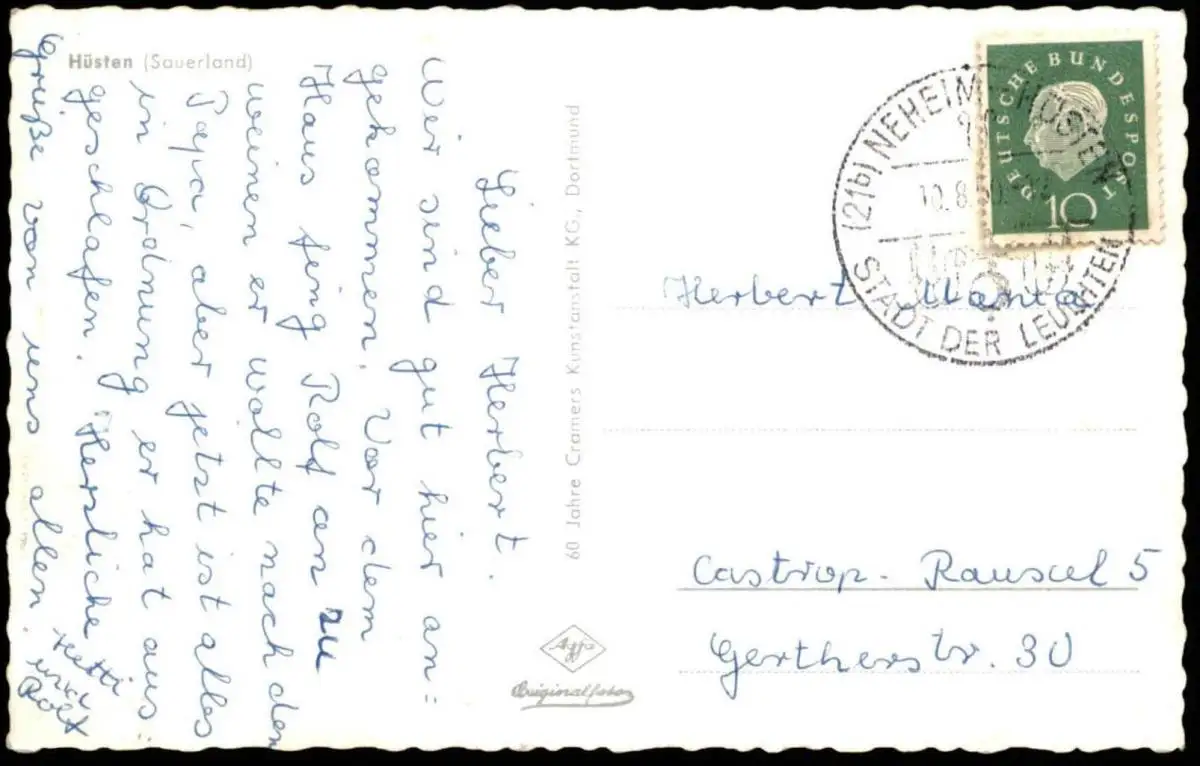 Hüsten (Sauerland)
Lieber Herbert.
Wir sind gut hier an=
gekommen. Vor dem
Haus fing Rolf an zu
weinen er wollte nach den
Papa, aber jetzt ist alles
in Ordnung er hat aus=
geschlafen. Herzliche
Grüße von uns allen.
Hetti
und
Rolf
60 Jahre Cramers Kunstanstalt KG., Dortmund
Agfa
Originalfoto
DEUTSCHE BUNDESPOST
10
(21b) NEHEIM-HÜSTEN
10.8.
STADT DER LEUCHTEN
Herbert
Castrop-Rauxel 5
Gertherstr. 30